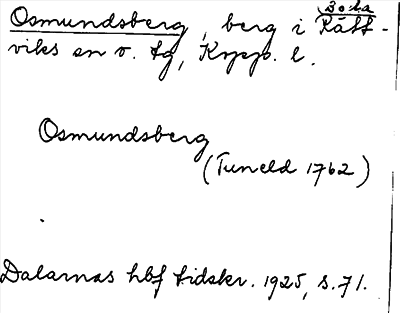 Osmundsberg, berg i Boda Rätt-
viks sn o. tg, Kopp. l.
Osmundsberg
(Tuneld 1762)
Dalarnas hbf tidskr. 1925, s. 71.